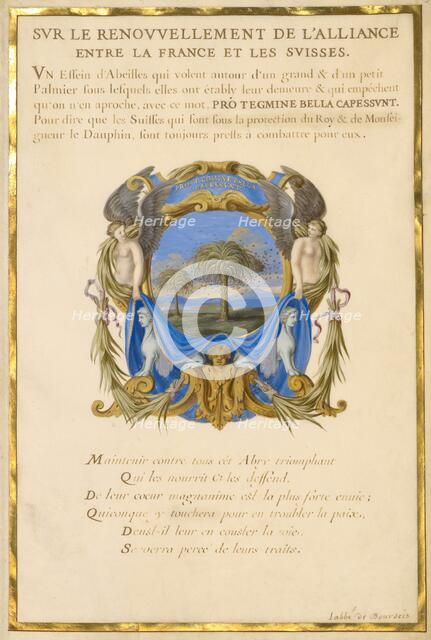 SVR LE RENOVVELLEMENT DE L'ALLIANCE
ENTRE LA FRANCE ET LES SVISSES.
VN Essein d'Abeilles qui volent autour d'un grand & d'un petit
Palmier sous lesquels elles ont étably leur demeure & qui empêchent
qu'on n'en aproche, avec ce mot, PRO TEGMINE BELLA CAPESSVNT.
Pour dire que les Suisses qui sont sous la protection du Roy & de Monsei-
gneur le Dauphin, sont toujours prests à combattre pour eux.
PRO TEGMINE BELLA
CAPESSVNT
Heritage
Heritage
Heritage
Heritage
Heritage
Heritage
Maintenir contre tous cét Abry triomphant
Qui les nourrit & les deffend,
De leur coeur magnanime est la plus forte envie;
Quiconque y touchera pour en troubler la paix,
Deust-il leur en couster la vie,
Se verra percé de leurs traits.
l'abbé de Bourseis